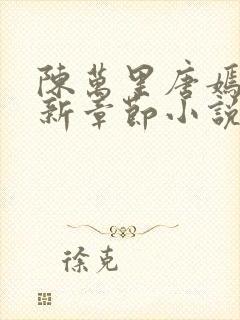 陳萬里唐嫣
新章節小說
徐克